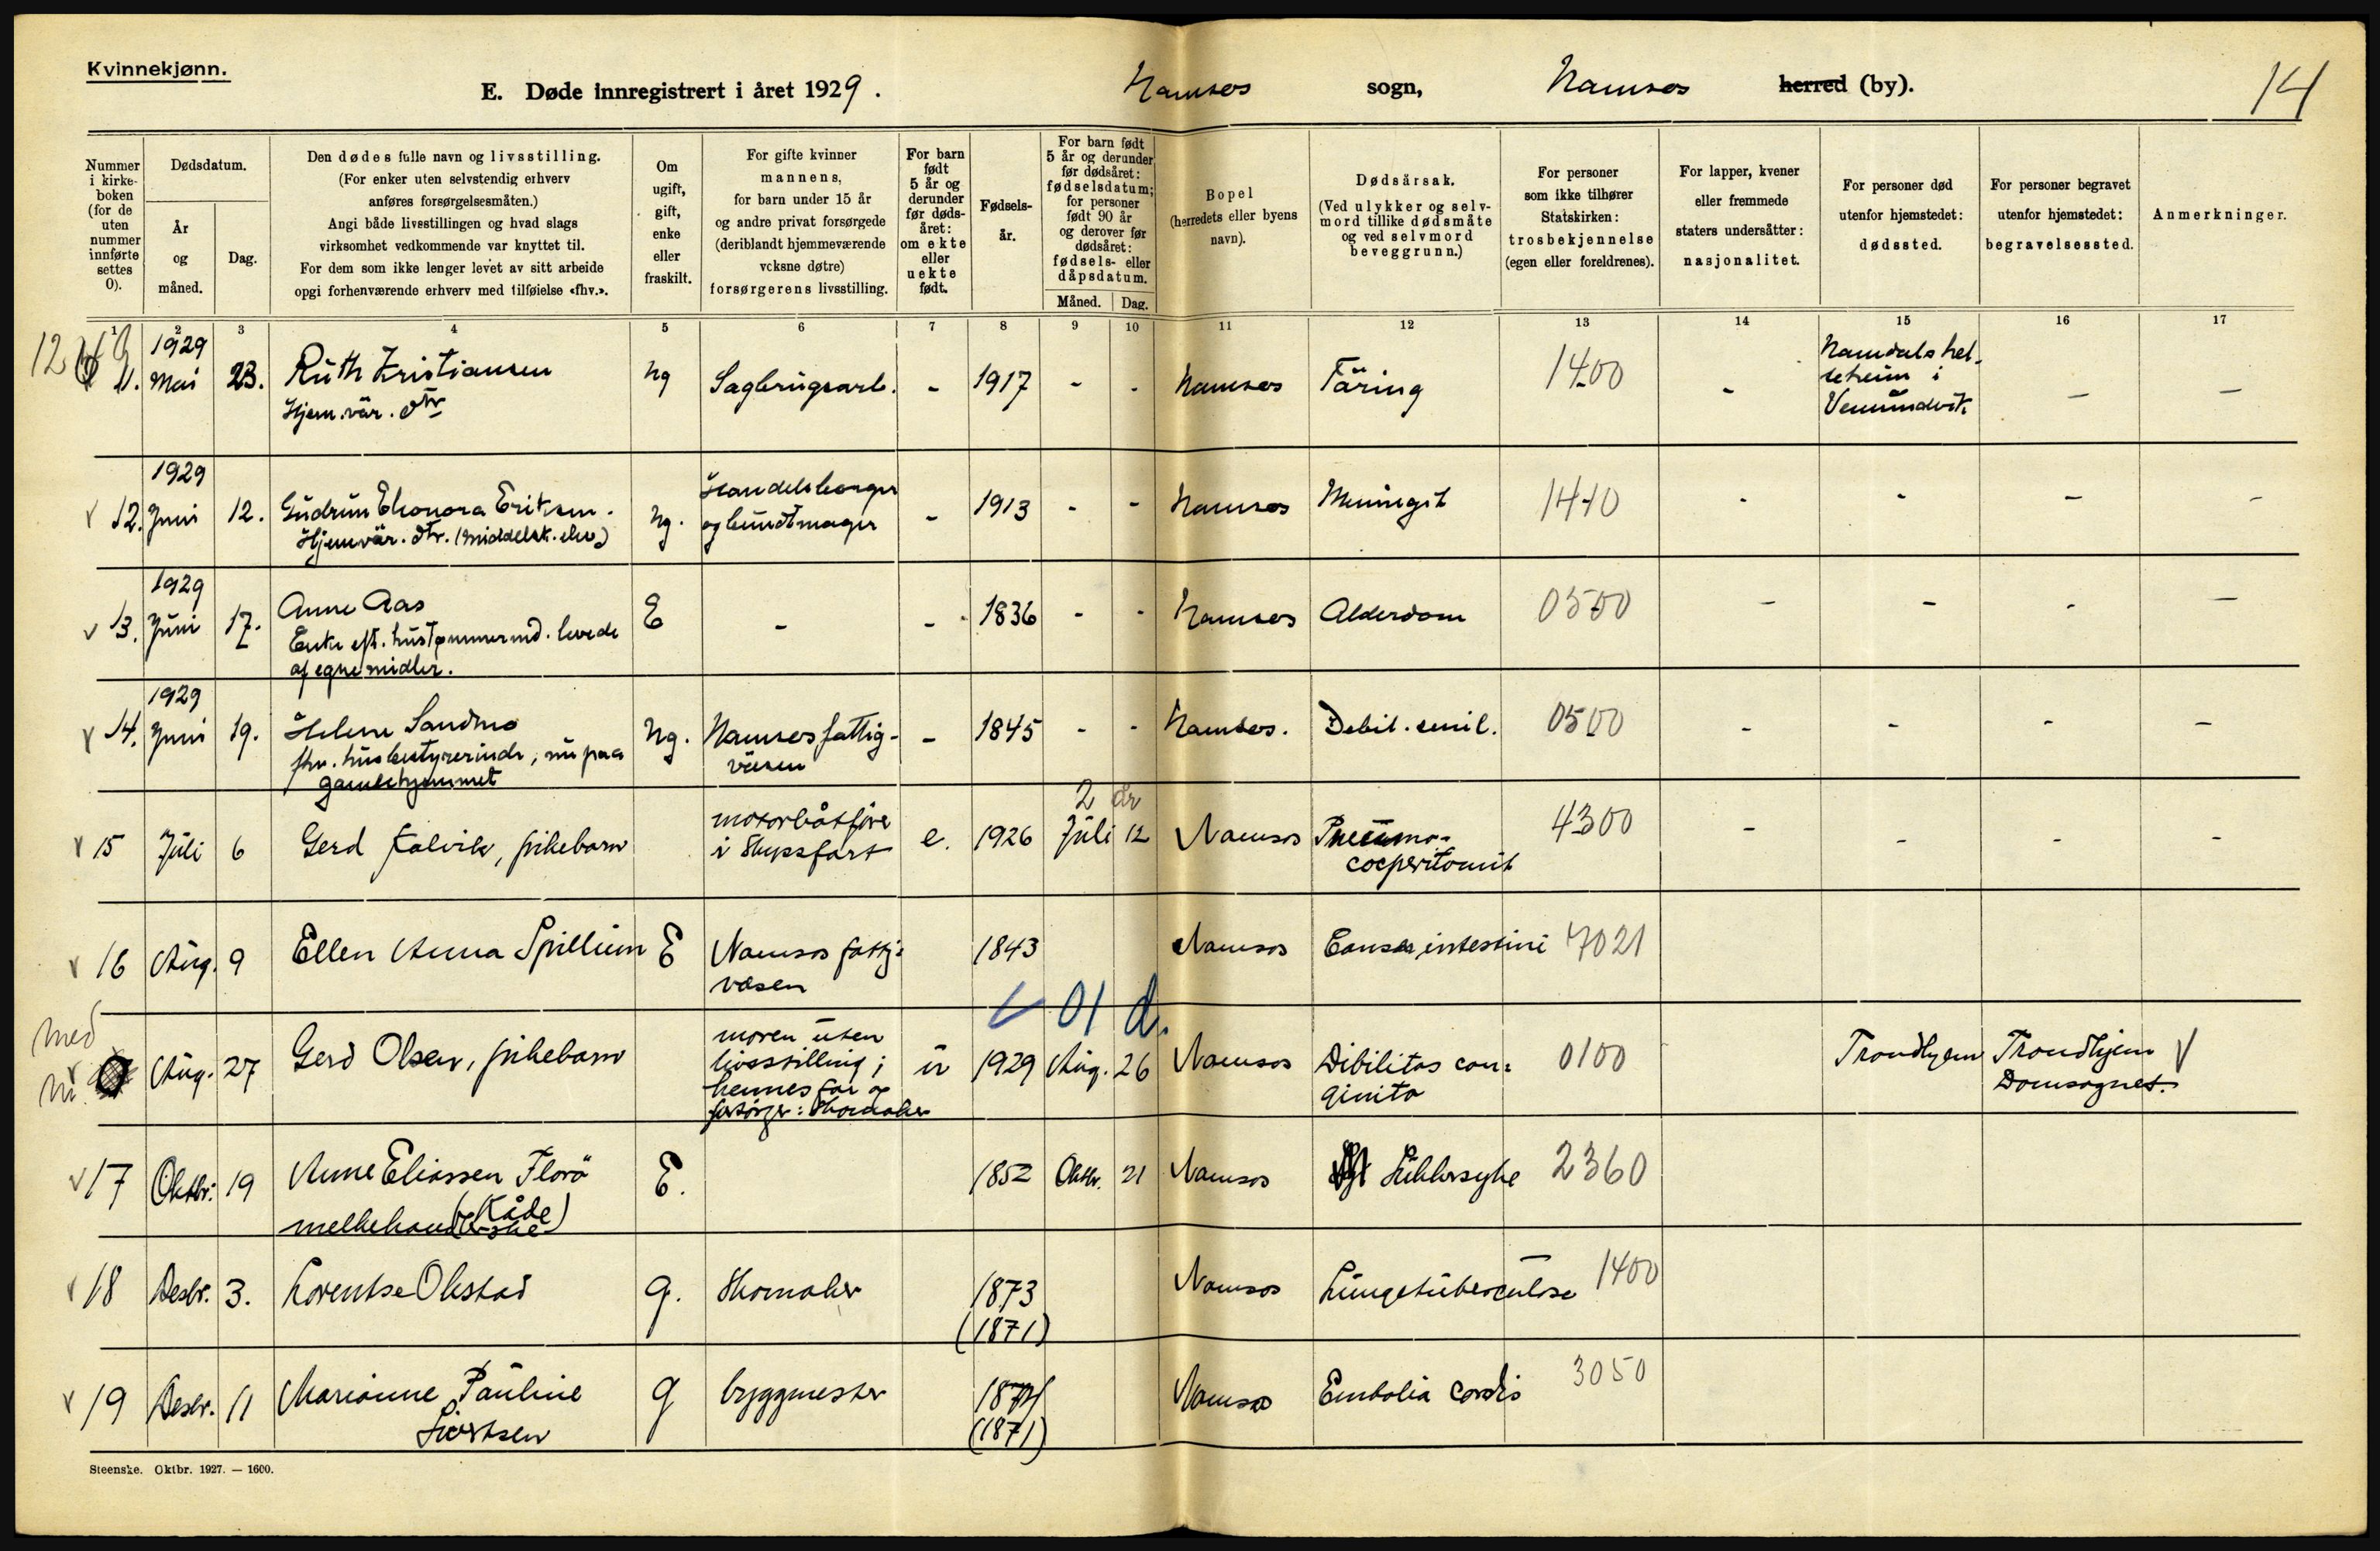 Kvinnekjønn.
E. Døde innregistrert i året 1929.
Namsos sogn, Namsos herred (by).
14
Nummer i kirke-boken (for de uten nummer innførte settes 0).
Dødsdatum.
År og måned.
Dag.
Den dødes fulle navn og livsstilling.
(For enker uten selvstendig erhverv
anføres forsørgelsesmåten.)
Angi både livsstillingen og hvad slags
virksomhet vedkommende var knyttet til.
For dem som ikke lenger levet av sitt arbeide
opgi forhenværende erhverv med tilføielse «fhv.».
Om ugift, gift, enke eller fraskilt.
For gifte kvinner
mannens,
for barn under 15 år
og andre privat forsørgede
(deriblandt hjemmeværende
voksne døtre)
forsørgerens livsstilling.
For barn født 5 år og derunder før dødsåret: om ekte eller uekte født.
Fødsels-år.
For barn født 5 år og derunder før dødsåret: fødselsdatum; for personer født 90 år og derover før dødsåret: fødsels- eller dåpsdatum.
Måned. Dag.
Bopel
(herredets eller byens
navn).
Dødsårsak.
(Ved ulykker og selv-
mord tillike dødsmåte
og ved selvmord
beveggrunn.)
For personer
som ikke tilhører
Statskirken:
trosbekjennelse
(egen eller foreldrenes).
For lapper, kvener
eller fremmede
staters undersåtter:
nasjonalitet.
For personer død
utenfor hjemstedet:
dødssted.
For personer begravet
utenfor hjemstedet:
begravelsessted.
Anmerkninger.
1 2 3 4 5 6 7 8 9 10 11 12 13 14 15 16 17
11. 1929 Mai 23. Ruth Kristiansen ug Sagbrugsarb. - 1917 - - Namsos Täring 1400 - Namdals hel-
Hjem.vär. dtr
Vemundvik - -
v 12. 1929 Juni 12. Gudrun Elionora Eriksen. ug. Handelsborger - 1913 - - Namsos Meningit 1410 - - - -
Hjemvär. dtr. (middelsk. elev) og buntmager
v 13. 1929 Juni 17. Anne Aas E - - 1836 - - Namsos Alderdom 0500 - - - -
Enke eft. hustømmermd. levede
af egne midler.
v 14. 1929 Juni 19. Helene Sandmo ug. Namsos fattig- - 1845 - - Namsos. Debil. senil. 0500 - - - -
fhv. husbestyrerinde, nu paa väsen
gamlehjemmet
2 år
v 15 Juli 6 Gerd Kalvik, pikebarn motorbåtfører e. 1926 Juli 12 Namsos Pneumo- 4300 - - - -
i Skypsfart cocperitonit
v 16 Aug. 9 Ellen Anna Spillum E Namsos fattig- 1843 Namsos Canser intestini 7021
väsen
01 d.
med
0 Aug. 27 Gerd Olsen, pikebarn moren uten u 1929 Aug. 26 Namsos Dibilitas con= 0100 Trondhjem Trondhjem v
livsstilling; ginita Domsognet.
hennes far og
forsörger: Skomaker
v 17 Oktbr. 19 Anne Eliassen Florö E. 1852 Oktbr. 21 Namsos Sukkersyke 2360
(Kåde)
melkehandlerske
v 18 Desbr. 3. Lorentse Olstad g. Skomaker 1873 Namsos Lungetuberculose 1400
(1871)
v 19 Desbr. 11 Marianne Pauline g byggmester 1871 Namsos Embolia cordis 3050
Sivertsen (1871)
Steenske. Oktbr. 1927. — 1600.